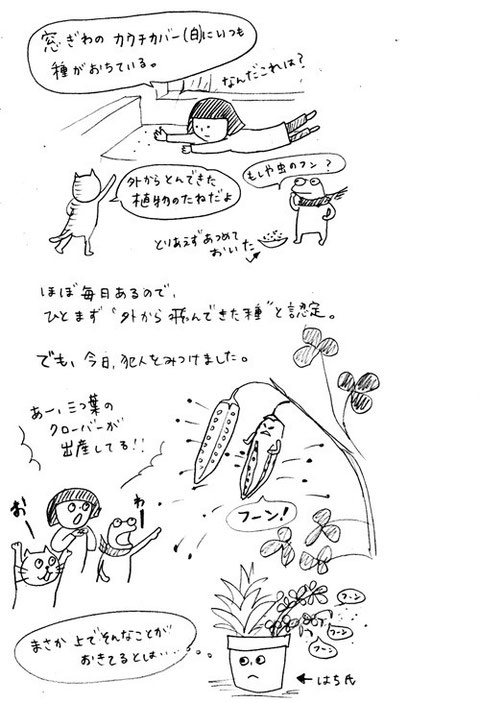 窓ぎわの カウチカバー(白)にいつも
種がおちている。
なんだこれは?
外からとんできた
植物のたねだよ
もしや虫のフン?
とりあえずあつめて
おいた
ほぼ毎日あるので、
ひとまず“外から飛んできた種”と認定。
でも、今日、犯人をみつけました。
あー、三つ葉の
クローバーが
出産してる!!
お
わ
フーン!
フーン
フーン
フーン
まさか上でそんなことが
おきてるとは・・・
←はち氏